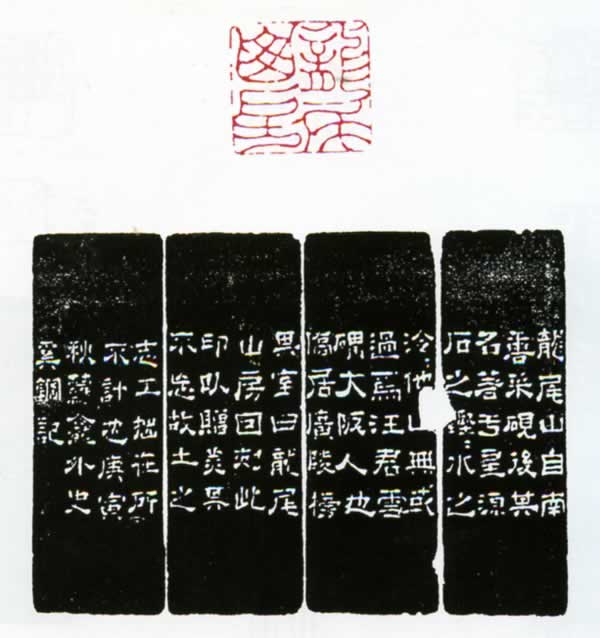 龍尾
山房
龍尾山自南
唐采硯後其
名著于星源
石之水之
冷他山無或
過焉汪君雪
礓大阪人也
僑居廣陵榜
其室曰龍尾
山房因刻此
印以贈美其
不忘故土之
志工拙在所
不計也庚寅
秋蘿龕外史
奚鋼記